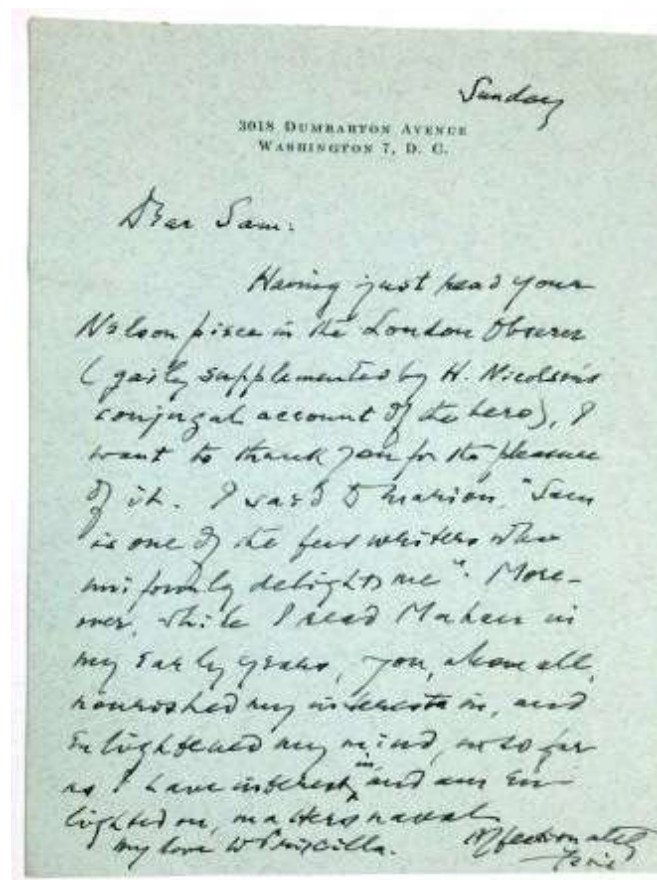 Sunday
3018 DUMBARTON AVENUE
WASHINGTON 7, D. C.
Dear Sam:
Having just read your
Nelson piece in the London Observer
(gaily supplemented by H. Nicolson's
conjugal account of the hero), I
want to thank you for the pleasure
of it. I said to Marion, "Sam
is one of the few writers who
uniformly delights me". More-
over, while I read Mahan in
my early years, you, above all,
nourished my interests in, and
enlightened my mind, so far
as I have interest in and am en-
lighted on, matters naval
My love to Priscilla.
Affectionately